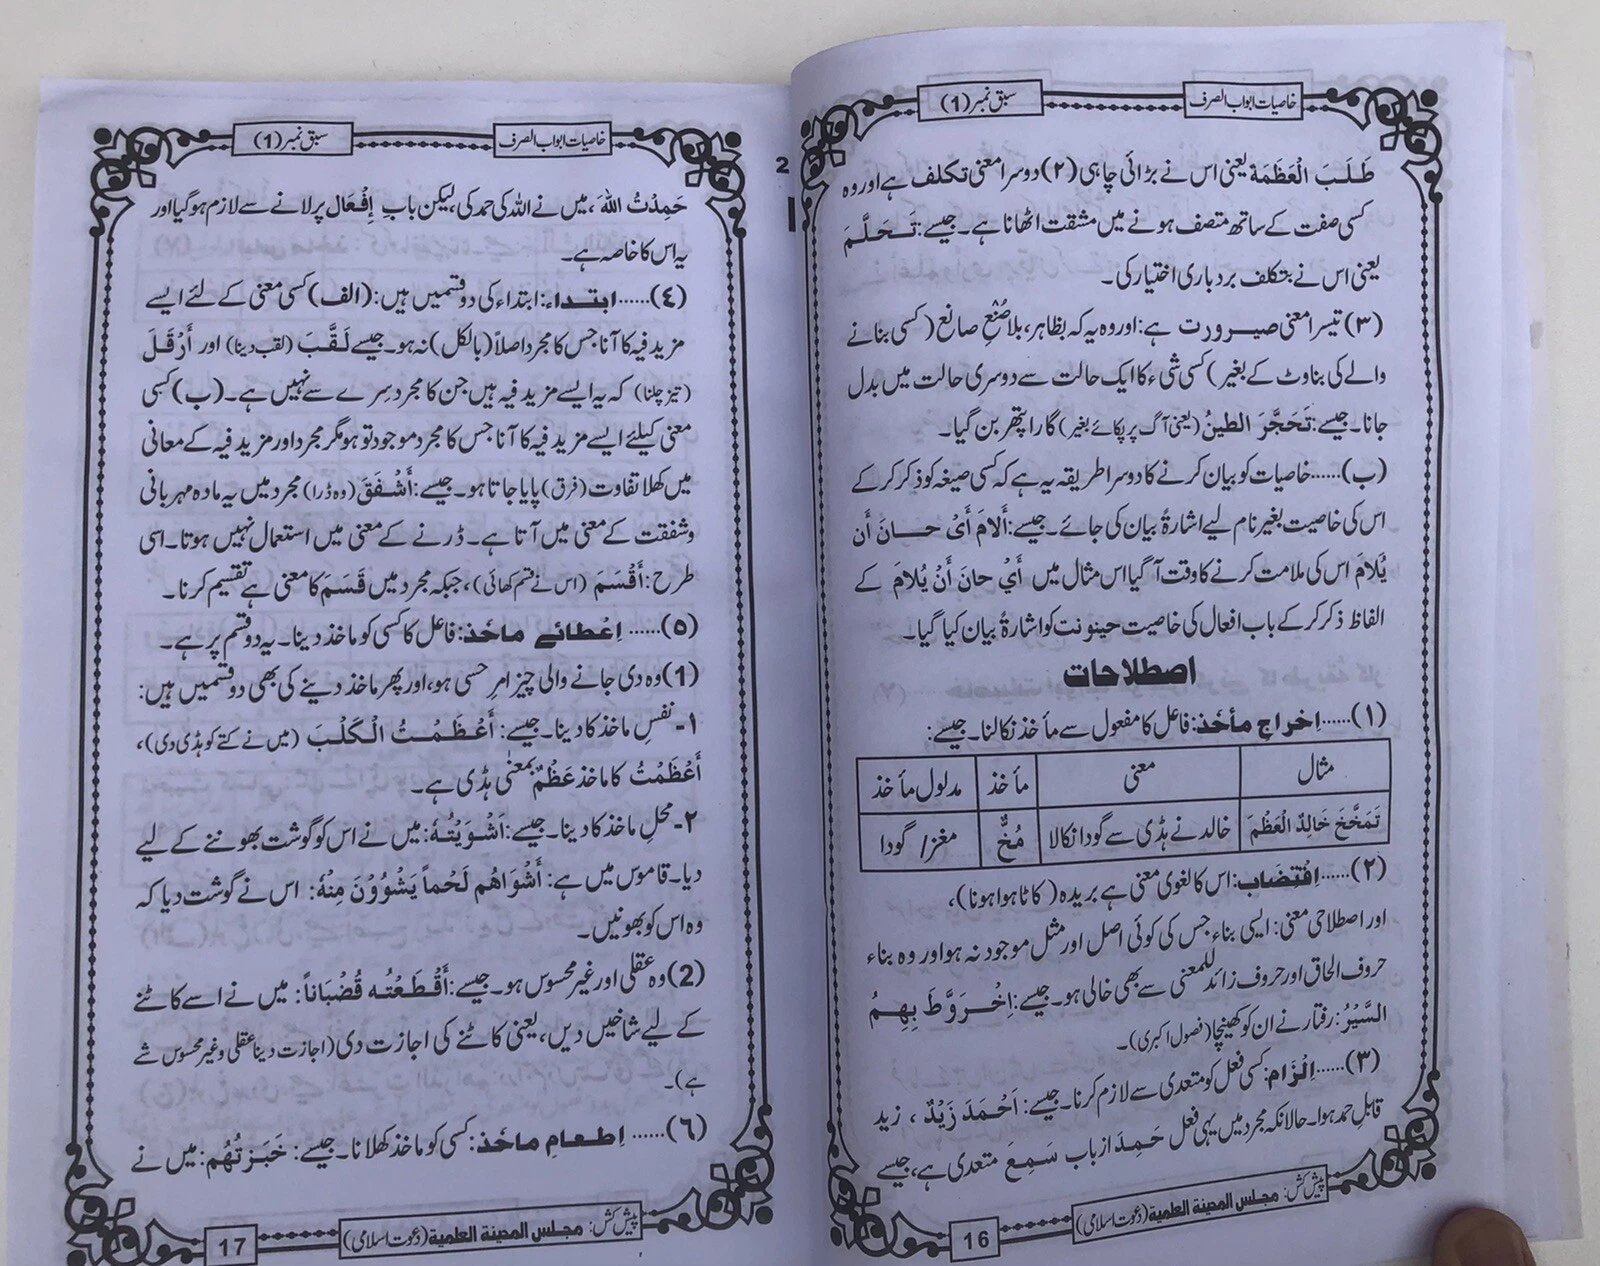 خاصیات ابواب الصرف
سبق نمبر (1)
طَلَبَ الْعَظَمَة یعنی اس نے بڑائی چاہی (۲) دوسرا معنی تکلف ہے اور وہ
کسی صفت کے ساتھ متصف ہونے میں مشقت اٹھانا ہے۔ جیسے: تَحَلَّمَ
یعنی اس نے بتکلف بردباری اختیار کی۔
(۳) تیسرا معنی صیرورت ہے: اور وہ یہ کہ بظاہر، بلا صُنْعِ صانع (کسی بنانے
والے کی بناوٹ کے بغیر) کسی شیء کا ایک حالت سے دوسری حالت میں بدل
جانا۔ جیسے: تَحَجَّرَ الطینُ (یعنی آگ پر پکائے بغیر) گارا پتھر بن گیا۔
(ب)......خاصیات کو بیان کرنے کا دوسرا طریقہ یہ ہے کہ کسی صیغہ کو ذکر کر کے
اس کی خاصیت بغیر نام لیے اشارۃً بیان کی جائے۔ جیسے: أَلامَ أَیْ حَانَ أَن
یُّلامَ اس کی ملامت کرنے کا وقت آ گیا اس مثال میں أَيْ حانَ أَنْ یُلامَ کے
الفاظ ذکر کر کے باب افعال کی خاصیت حینونت کو اشارۃً بیان کیا گیا۔
اصطلاحات
(۱)......اِخراجِ مأخَذ: فاعل کا مفعول سے مأخذ نکالنا۔ جیسے:
مثال معنی مأخذ مدلول مأخذ
تَمَخَّخَ خَالِدٌ الْعَظْمَ خالد نے ہڈی سے گودا نکالا مُخٌّ مغز/ گودا
(۲)......اِقْتِضَاب: اس کا لغوی معنی ہے بریدہ (کاٹا ہوا ہونا)،
اور اصطلاحی معنی: ایسی بناء جس کی کوئی اصل اور مثل موجود نہ ہو اور وہ بناء
حروف الحاق اور حروف زائد للمعنی سے بھی خالی ہو۔ جیسے: اِخْرَوَّطَ بِهِمُ
السَّیْرُ: رفتار نے ان کو کھینچا (فصول اکبری)۔
(۳)......اِلْزَام: کسی فعل کو متعدی سے لازم کرنا۔ جیسے: اَحْمَدَ زَیْدٌ ، زید
قابلِ حمد ہوا۔ حالانکہ مجرد میں یہی فعل حَمِدَ از باب سَمِعَ متعدی ہے، جیسے
پیش کش: مجلس المدینة العلمیة (دعوت اسلامی)
16
خاصیات ابواب الصرف
سبق نمبر (1)
حَمِدْتُ اللّٰهَ ، میں نے اللہ کی حمد کی، لیکن بابِ إِفْعَال پر لانے سے لازم ہو گیا اور
یہ اس کا خاصہ ہے۔
(٤)......ابتداء: ابتداء کی دو قسمیں ہیں: (الف) کسی معنی کے لئے ایسے
مزید فیہ کا آنا جس کا مجرد اصلاً (بالکل) نہ ہو۔ جیسے لَقَّبَ (لقب دینا) اور أَرْقَلَ
(تیز چلنا) کہ یہ ایسے مزید فیہ ہیں جن کا مجرد سِرے سے نہیں ہے۔ (ب) کسی
معنی کیلئے ایسے مزید فیہ کا آنا جس کا مجرد موجود تو ہو مگر مجرد اور مزید فیہ کے معانی
میں کھلا تفاوت (فرق) پایا جاتا ہو۔ جیسے: أَشْفَقَ (وہ ڈرا) مجرد میں یہ مادہ مہربانی
وشفقت کے معنی میں آتا ہے۔ ڈرنے کے معنی میں استعمال نہیں ہوتا۔ اسی
طرح: أَقْسَمَ (اس نے قسم کھائی)، جبکہ مجرد میں قَسَمَ کا معنی ہے تقسیم کرنا۔
(۵)...... اِعْطائے ماخَذ: فاعل کا کسی کو ماخذ دینا۔ یہ دو قسم پر ہے۔
(1) وہ دی جانے والی چیز امرِ حسی ہو، اور پھر ماخذ دینے کی بھی دو قسمیں ہیں:
۱- نفسِ ماخذ کا دینا۔ جیسے: أَعْظَمْتُ الْکَلْبَ (میں نے کتے کو ہڈی دی)،
أَعْظَمْتُ کا ماخذ عَظْمٌ بمعنٰی ہڈی ہے۔
۲- محلِ ماخذ کا دینا۔ جیسے: أَشْوَیْتُهٗ: میں نے اس کو گوشت بھوننے کے لیے
دیا۔ قاموس میں ہے: أَشْوَاهُم لَحْماً یَشْوُوْنَ مِنْهُ: اس نے گوشت دیا کہ
وہ اس کو بھونیں۔
(2) وہ عقلی اور غیر محسوس ہو۔ جیسے: أَقْطَعْتُه قُضْبَاناً: میں نے اسے کاٹنے
کے لیے شاخیں دیں، یعنی کاٹنے کی اجازت دی (اجازت دینا عقلی وغیر محسوس شے
ہے)۔
(۶)...... اِطعامِ ماخَذ: کسی کو ماخذ کھلانا۔ جیسے: خَبَزْتُهُم: میں نے
پیش کش: مجلس المدینة العلمیة (دعوت اسلامی)
17
2